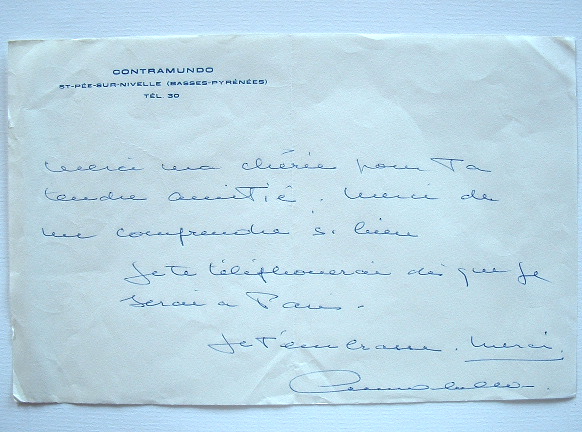 CONTRAMUNDO
ST-PÉE-SUR-NIVELLE (BASSES-PYRÉNÉES)
TÉL. 30
merci ma chérie pour ta
tendre amitié. Merci de
me comprendre si bien
Je te téléphonerai dès que je
serai a Paris.
Je t'embrasse. Merci.